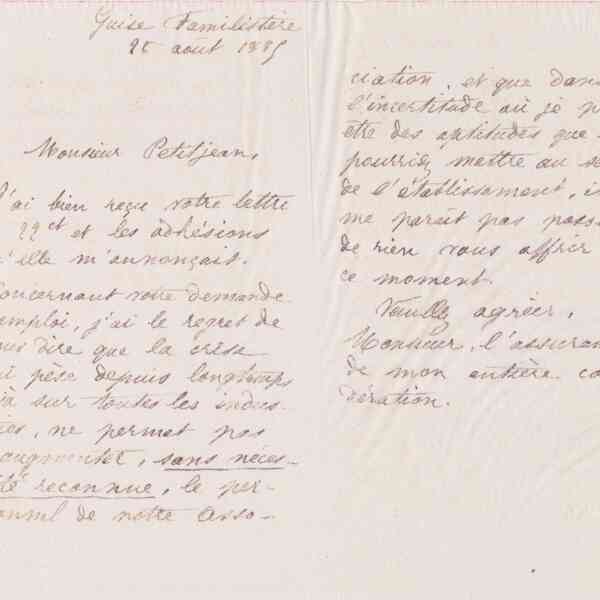 Guise Familistère
25 août 1885
Monsieur Petitjean,
J'ai bien reçu votre lettre
22 ct et les adhésions
qu'elle m'annonçait.
Concernant votre demande
emploi, j'ai le regret de
vous dire que la crise
qui pèse depuis longtemps
jà sur toutes les indus-
ries, ne permet pas
augmenter, sans néces-
ité reconnue, le per-
sonnel de notre Asso-
ciation, et que dans
l'incertitude où je
être des aptitudes que
pourriez mettre au se
de l'établissement, i
me paraît pas poss
de rien vous offrir
ce moment.
Veuillez agréer,
Monsieur, l'assuran
de mon entière co
dération.